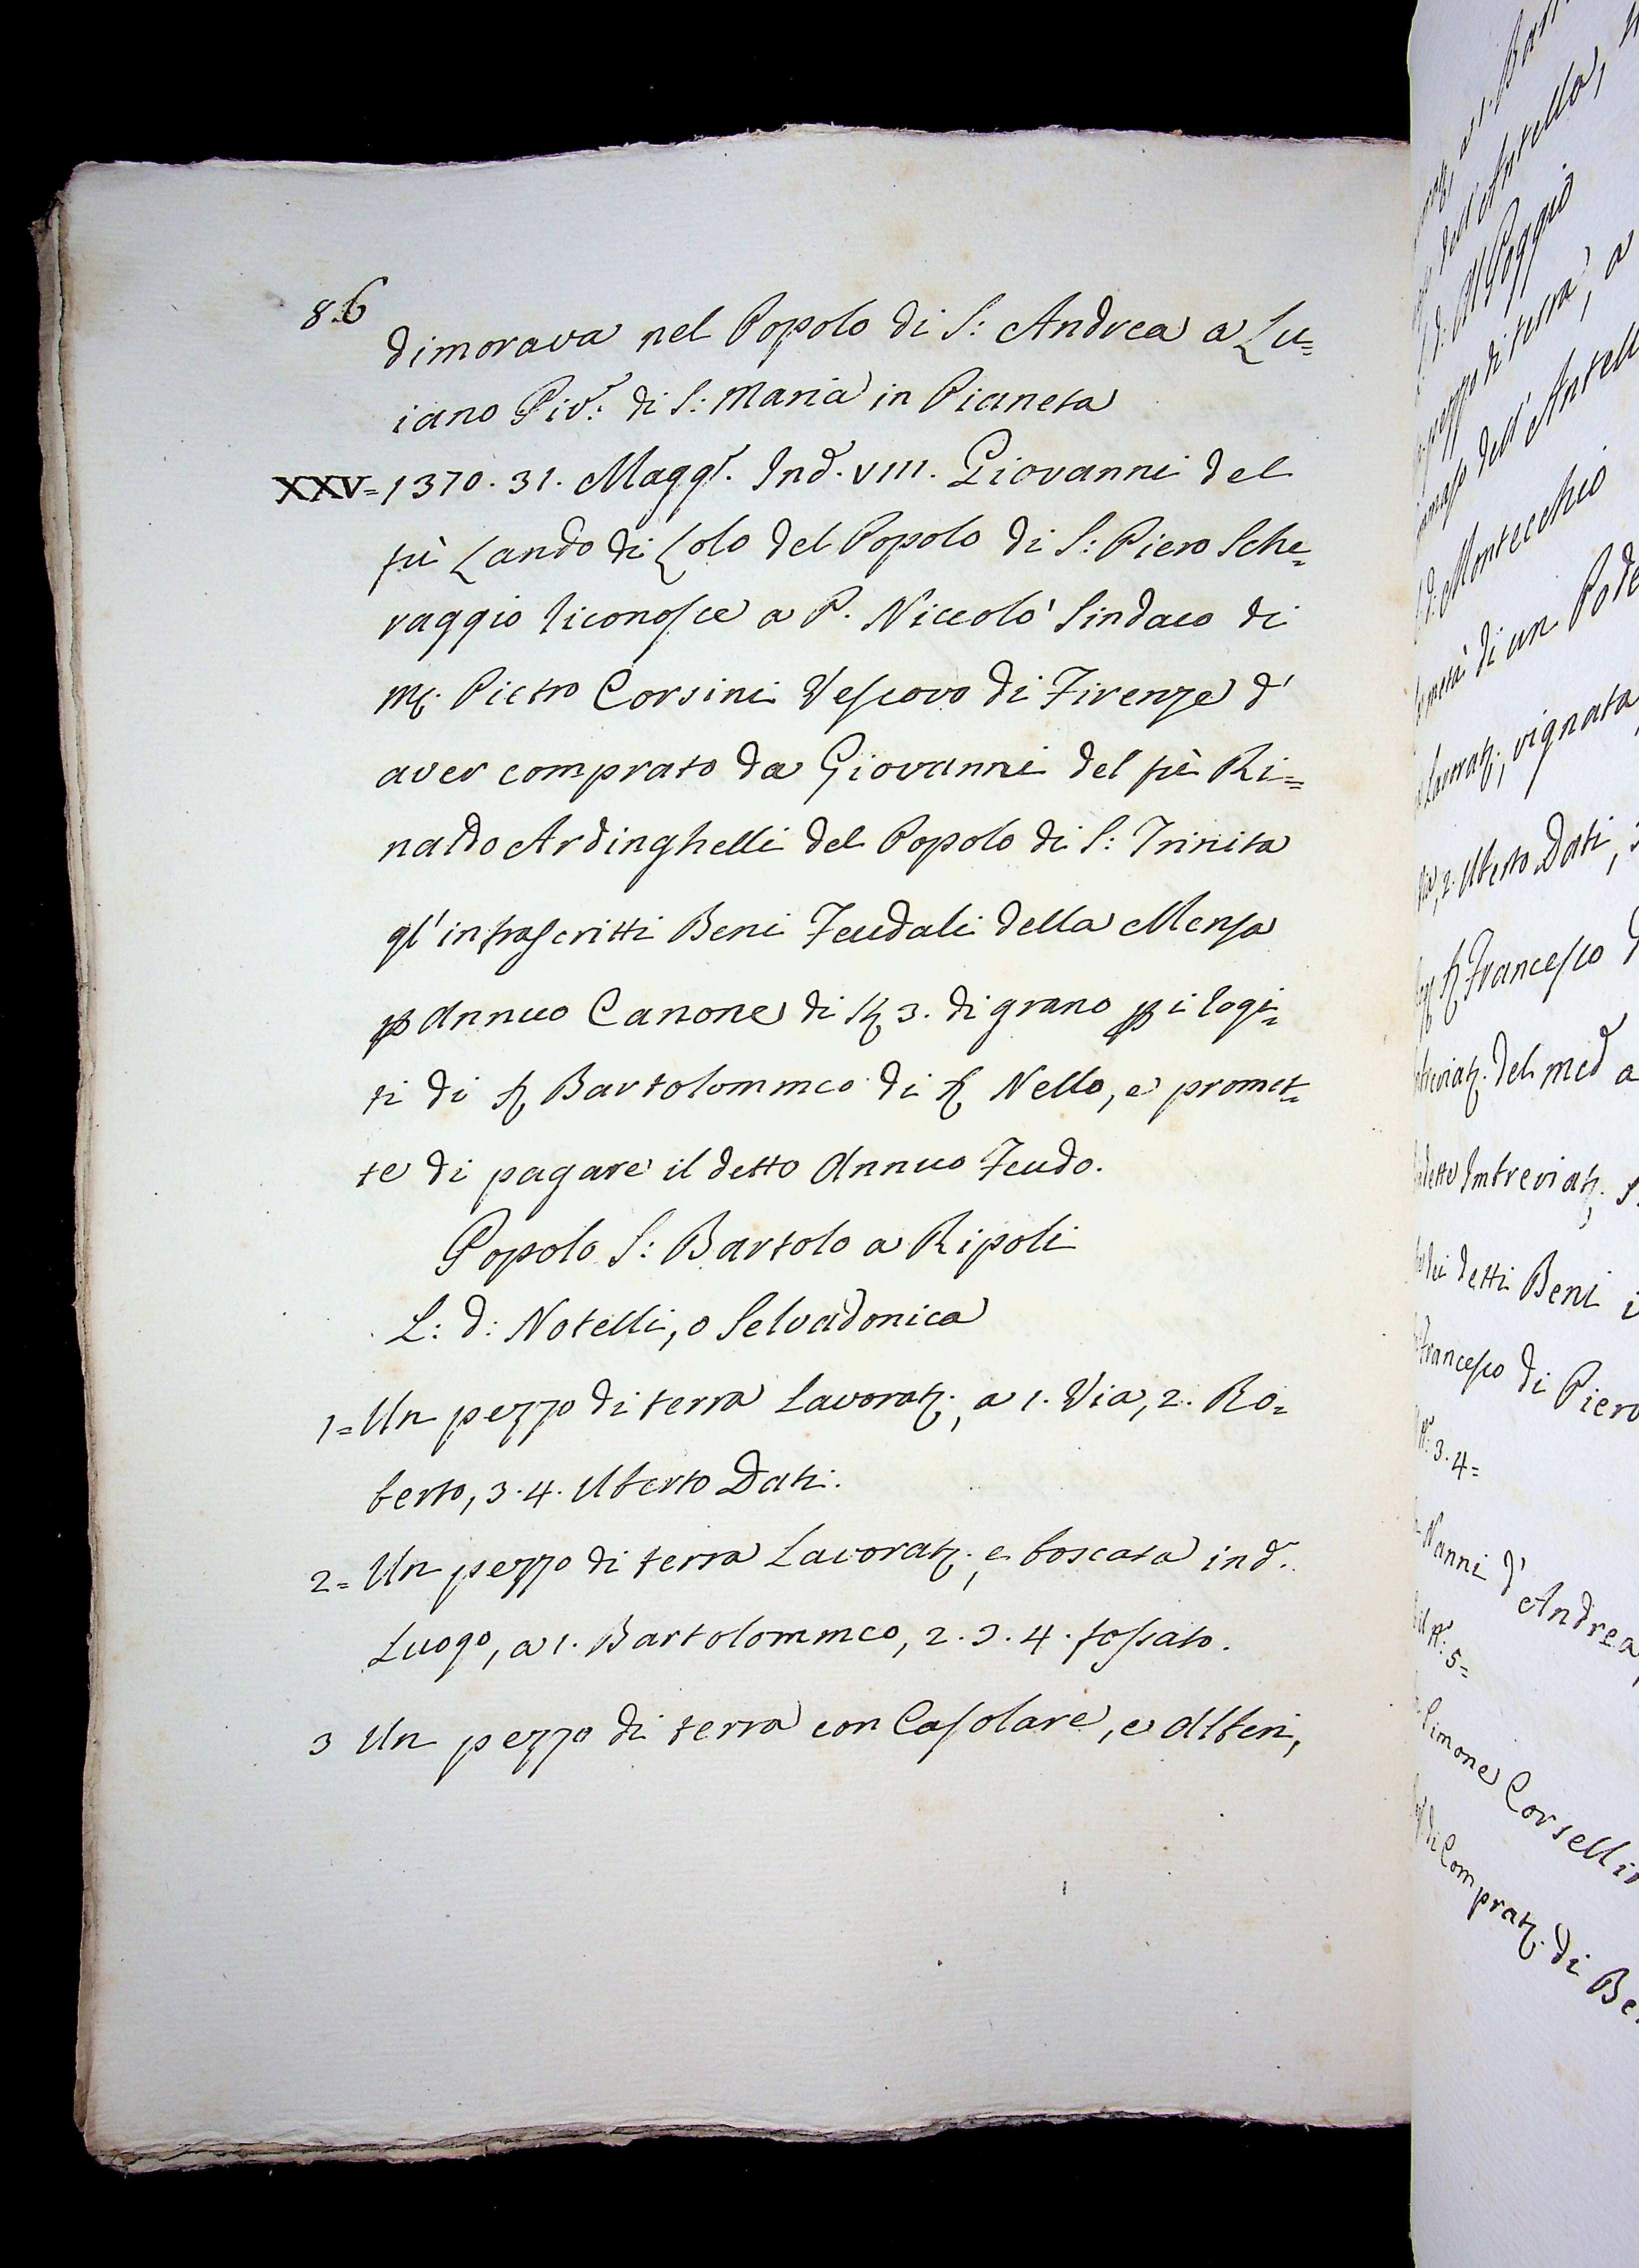 86
dimorava nel Popolo di S: Andrea a Lu=
iano Piv.e di S: Maria in Pianeta
XXV= 1370. 31. Magg.o Ind. VIII. Giovanni del
fù Lando di Lolo del Popolo di S: Piero Sche=
raggio riconosce a P. Niccolò Sindaco di
M. Pietro Corsini Vescovo di Firenze d'
aver comprato da Giovanni del fù Ri=
naldo Ardinghelli del Popolo di S: Trinita
gl'infrascritti Beni Feudali della Mensa
p Annuo Canone di 3. di grano p i rogi=
ti di S Bartolommeo di S Nello, e promet=
te di pagare il detto Annuo Feudo.
Popolo S: Bartolo a Ripoli
L: d: Notelli, o Selvadonica
1= Un pezzo di terra Lavorat; a 1. Via, 2. Ro=
berto, 3. 4. Uberto Dati.
2= Un pezzo di terra Lavorat; e boscata in d.
Luogo, a 1. Bartolommeo, 2. 3. 4. fossato.
3 Un pezzo di terra con Casolare, e Alberi,
dell'Antella,
Al Poggio
pezzo di terra, a
dell'Antell
Montecchio
metà di un Pode
Lavorat; vignata,
2. Uberto Dati, 3
Francesco
del med a
detto Imbreviat;
detti Beni i
Francesco di Piero
3. 4=
Nanni d'Andrea,
5=
Simone Corsellin
di Comprat. di Be